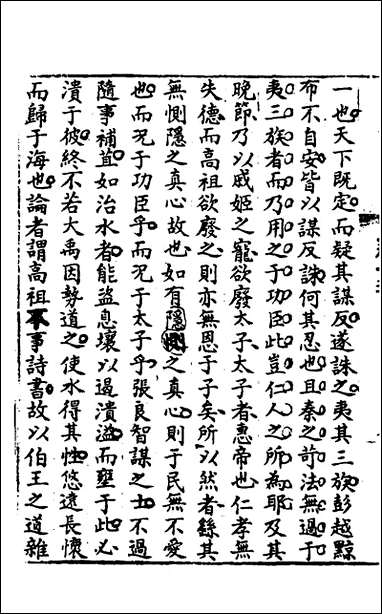 一也天下既定而疑其謀反遂誅之夷其三族彭越黥
布不自安皆以謀反誅何其忍也且秦之苛法無過于
夷三族者而乃用之于功臣此豈仁人之所為耶及其
晚節乃以戚姬之寵欲廢太子太子者惠帝也仁孝無
失德而高祖欲廢之則亦無恩于子矣所以然者繇其
無惻隱之真心故也如有隱惻之真心則于民無不愛
也而况于功臣乎而况于太子乎張良智謀之士不過
隨事補苴如治水者能盜息壤以遏潰溢而壅于此必
潰于彼終不若大禹因勢道之使水得其性悠遠長懷
而歸于海也論者謂高祖不事詩書故以伯王之道雜